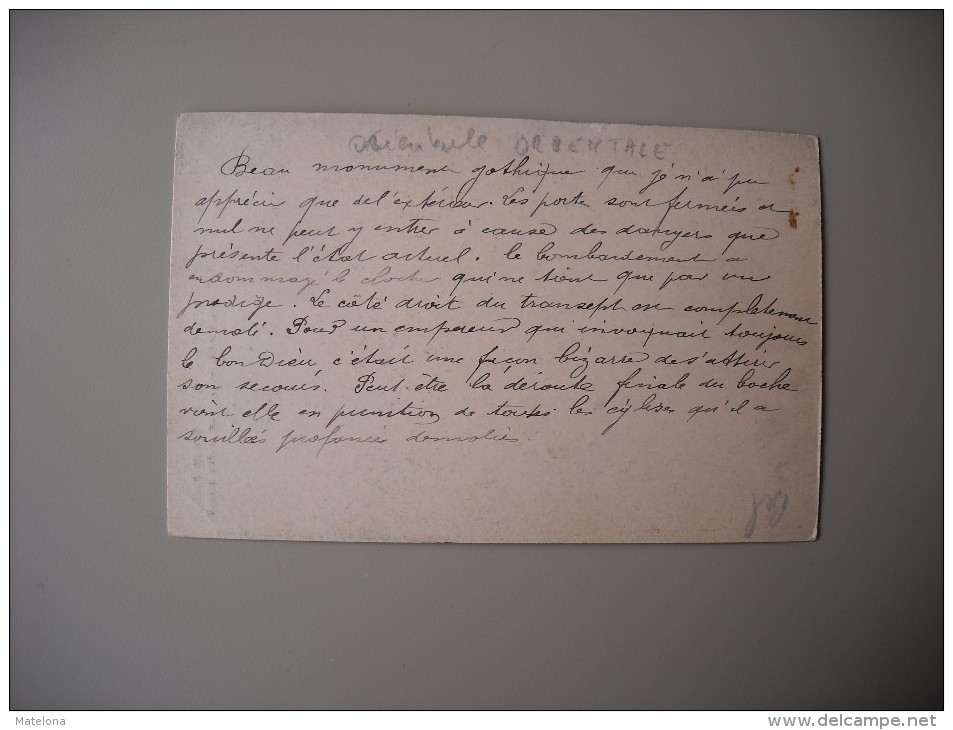 ORBENTALE
Beau monument gothique que je n'ai pu
apprécier que de l'extérieur. Les portes sont fermées et
nul ne peut y entrer à cause des dangers que
présente l'état actuel. le bombardement a
endommagé le clocher qui ne tient que par un
prodige. Le côté droit du transept est complètement
demoli. Pour un empereur qui invoquait toujours
le bon Dieu c'était une façon bizarre de s'attirer
son secours. Peut-être la déroute finale du boche
vient elle en punition de toutes les églises qu'il a
souillées profanées demolies.
Matelona
www.delcampe.net